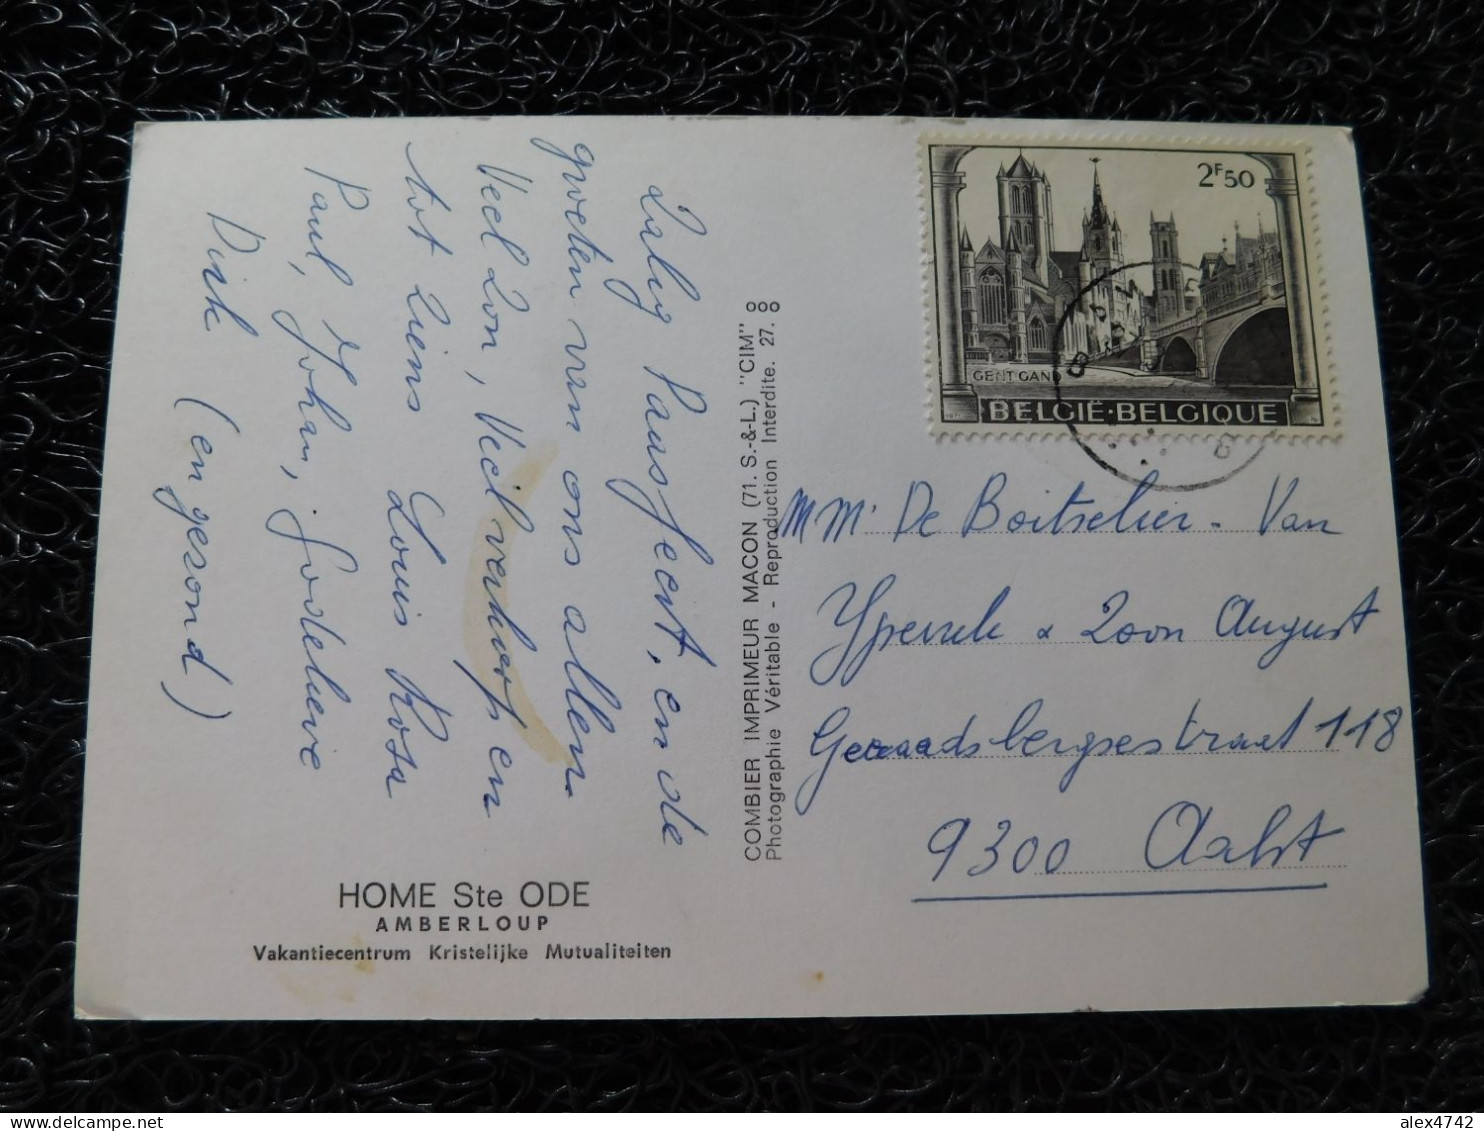 Zalig Paasfeest, en de
groeten van ons allen.
Veel Zon, Veel verkoop en
tot Ziens Louis Rosa
Paul, Johan, Godelieve
Dirk (en gezond)
HOME Ste ODE
AMBERLOUP
Vakantiecentrum Kristelijke Mutualiteiten
COMBIER IMPRIMEUR MACON (71. S.-&-L.) "CIM"
Photographie Véritable - Reproduction Interdite. 27. 8
2F50
GENT GAND
BELGIË·BELGIQUE
MM' De Boitselier - Van
& Zoon August
Geraadsbergsestraat 118
9300 Aalst
alex4742